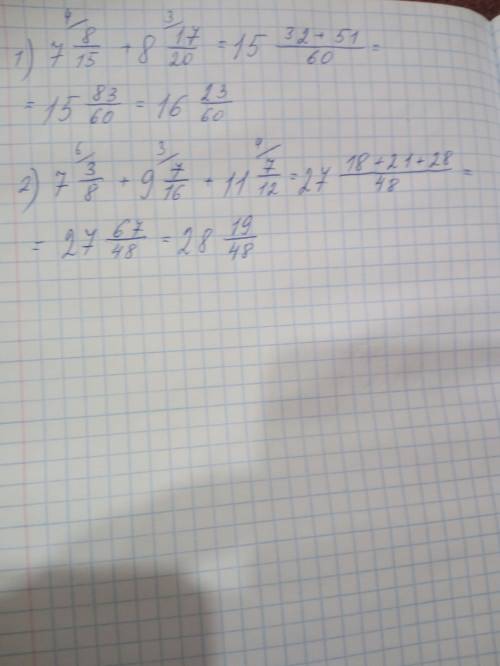 1) 7 4/ 8/15 + 8 3/ 17/20 = 15 32+51/60 =
= 15 83/60 = 16 23/60
2) 7 6/ 3/8 + 9 3/ 7/16 + 11 4/ 7/12 = 27 18+21+28/48 =
= 27 67/48 = 28 19/48